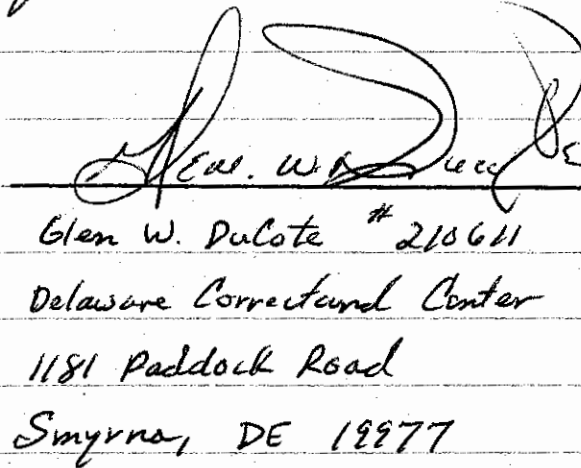 Glen W. DuCote # 210611
Delaware Correctund Center
1181 Paddock Road
Smyrna, DE 19977